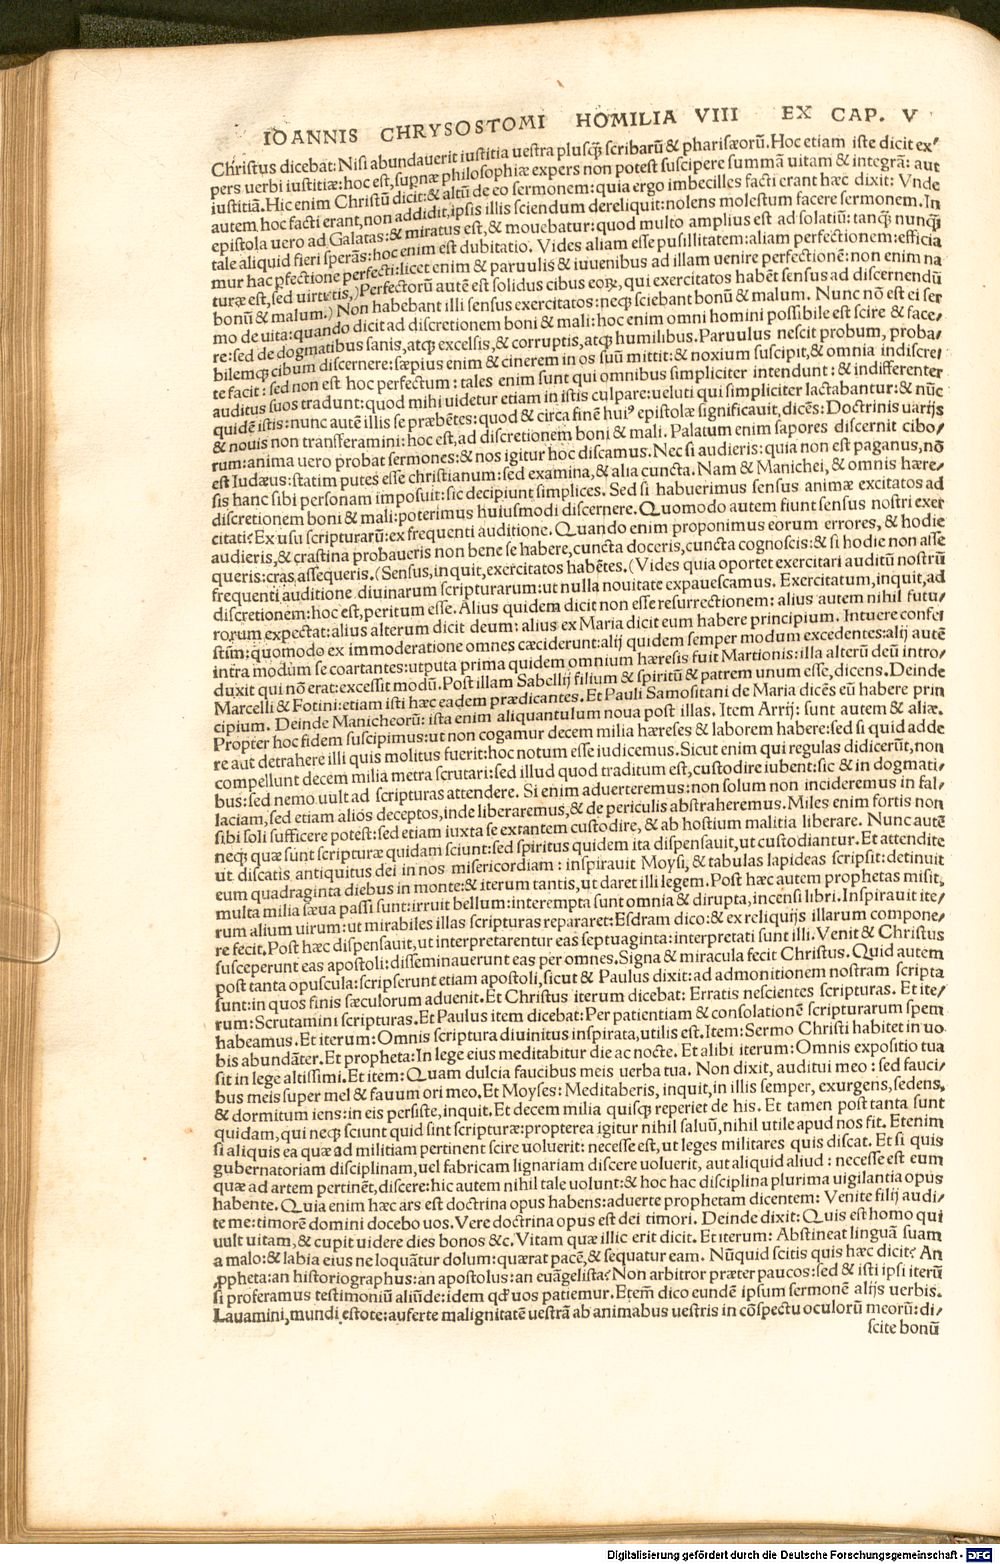 IOANNIS CHRYSOSTOMI HOMILIA VIII EX CAP. V
Christus dicebat: Nisi abundauerit iustitia uestra plusq̃ scribarũ & pharisæorũ. Hoc etiam iste dicit ex⸗
pers uerbi iustitiæ: hoc est, supnæ philosophiæ expers non potest suscipere summã uitam & integrã: aut
iustitiã. Hic enim Christũ dicit: & altũ de eo sermonem: quia ergo imbecilles facti erant hæc dixit: Vnde
autem hoc facti erant, non addidit, ipsis illis sciendum dereliquit: nolens molestum facere sermonem. In
epistola uero ad Galatas: & miratus est, & mouebatur: quod multo amplius est ad solatiũ: tanq̃ nunq̃
tale aliquid fieri sperãs: hoc enim est dubitatio. Vides aliam esse pusillitatem: aliam perfectionem: efficia
mur hac pfectione perfecti: licet enim & paruulis & iuuenibus ad illam uenire perfectionẽ: non enim na
turæ est, sed uirtutis,) Perfectorũ autẽ est solidus cibus eoꝝ, qui exercitatos habẽt sensus ad discernendũ
bonũ & malum.) Non habebant illi sensus exercitatos: neq; sciebant bonũ & malum. Nunc nõ est ei ser
mo de uita: quando dicit ad discretionem boni & mali: hoc enim omni homini possibile est scire & face⸗
re: sed de dogmatibus sanis, atq; excelsis, & corruptis, atq; humilibus. Paruulus nescit probum, proba⸗
bilemq; cibum discernere: sæpius enim & cinerem in os suũ mittit: & noxium suscipit, & omnia indiscre⸗
te facit: sed non est hoc perfectum: tales enim sunt qui omnibus simpliciter intendunt: & indifferenter
auditus suos tradunt: quod mihi uidetur etiam in istis culpare: ueluti qui simpliciter lactabantur: & nũc
quidẽ istis: nunc autẽ illis se præbẽtes: quod & circa finẽ huiꝰ epistolæ significauit, dicẽs: Doctrinis uarijs
& nouis non transferamini: hoc est, ad discretionem boni & mali. Palatum enim sapores discernit cibo⸗
rum: anima uero probat sermones: & nos igitur hoc discamus. Nec si audieris: quia non est paganus, nõ
est Iudæus: statim putes esse christianum: sed examina, & alia cuncta. Nam & Manichei, & omnis hære⸗
sis hanc sibi personam imposuit: sic decipiunt simplices. Sed si habuerimus sensus animæ excitatos ad
discretionem boni & mali: poterimus huiusmodi discernere. Quomodo autem fiunt sensus nostri exer
citati? Ex usu scripturarũ: ex frequenti auditione. Quando enim proponimus eorum errores, & hodie
audieris, & crastina probaueris non bene se habere, cuncta doceris, cuncta cognoscis: & si hodie non asse
queris: cras assequeris. (Sensus, inquit, exercitatos habẽtes. (Vides quia oportet exercitari auditũ nostrũ
frequenti auditione diuinarum scripturarum: ut nulla nouitate expauescamus. Exercitatum, inquit, ad
discretionem: hoc est, peritum esse. Alius quidem dicit non esse resurrectionem: alius autem nihil futu⸗
rorum expectat: alius alterum dicit deum: alius ex Maria dicit eum habere principium. Intuere confes
stim: quomodo ex immoderatione omnes cæciderunt: alij quidem semper modum excedentes: alij autẽ
intra modum se coartantes: utputa prima quidem omnium hæresis fuit Martionis: illa alterũ deũ intro⸗
duxit qui nõ erat: excessit modũ. Post illam Sabellij filium & spiritũ & patrem unum esse, dicens. Deinde
Marcelli & Fotini: etiam isti hæc eadem prædicantes. Et Pauli Samositani de Maria dicẽs eũ habere prin
cipium. Deinde Manicheorũ: ista enim aliquantulum noua post illas. Item Arrij: sunt autem & aliæ.
Propter hoc fidem suscipimus: ut non cogamur decem milia hæreses & laborem habere: sed si quid adde
re aut detrahere illi quis molitus fuerit: hoc notum esse iudicemus. Sicut enim qui regulas didicerũt, non
compellunt decem milia metra scrutari: sed illud quod traditum est, custodire iubent: sic & in dogmati⸗
bus: sed nemo uult ad scripturas attendere. Si enim aduerteremus: non solum non incideremus in fal⸗
laciam, sed etiam alios deceptos, inde liberaremus, & de periculis abstraheremus. Miles enim fortis non
sibi soli sufficere potest: sed etiam iuxta se extantem custodire, & ab hostium malitia liberare. Nunc autẽ
neq; quæ sunt scripturæ quidam sciunt: sed spiritus quidem ita dispensauit, ut custodiantur. Et attendite
ut discatis antiquitus dei in nos misericordiam: inspirauit Moysi, & tabulas lapideas scripsit: detinuit
eum quadraginta diebus in monte: & iterum tantis, ut daret illi legem. Post hæc autem prophetas misit,
multa milia sæua passi sunt: irruit bellum: interempta sunt omnia & dirupta, incensi libri. Inspirauit ite⸗
rum alium uirum: ut mirabiles illas scripturas repararet: Esdram dico: & ex reliquijs illarum compone⸗
re fecit. Post hæc dispensauit, ut interpretarentur eas septuaginta: interpretati sunt illi. Venit & Christus
susceperunt eas apostoli: disseminauerunt eas per omnes. Signa & miracula fecit Christus. Quid autem
post tanta opuscula: scripserunt etiam apostoli, sicut & Paulus dixit: ad admonitionem nostram scripta
sunt: in quos finis sæculorum aduenit. Et Christus iterum dicebat: Erratis nescientes scripturas. Et ite⸗
rum: Scrutamini scripturas. Et Paulus item dicebat: Per patientiam & consolationẽ scripturarum spem
habeamus. Et iterum: Omnis scriptura diuinitus inspirata, utilis est. Item: Sermo Christi habitet in uo
bis abundãter. Et propheta: In lege eius meditabitur die ac nocte. Et alibi iterum: Omnis expositio tua
sit in lege altissimi. Et item: Quam dulcia faucibus meis uerba tua. Non dixit, auditui meo: sed fauci⸗
bus meis super mel & fauum ori meo. Et Moyses: Meditaberis, inquit, in illis semper, exurgens, sedens,
& dormitum iens: in eis persiste, inquit. Et decem milia quisq; reperiet de his. Et tamen post tanta sunt
quidam, qui neq; sciunt quid sint scripturæ: propterea igitur nihil saluũ, nihil utile apud nos fit. Etenim
si aliquis ea quæ ad militiam pertinent scire uoluerit: necesse est, ut leges militares quis discat. Et si quis
gubernatoriam disciplinam, uel fabricam lignariam discere uoluerit, aut aliquid aliud: necesse est eum
quæ ad artem pertinẽt, discere: hic autem nihil tale uolunt: & hoc hac disciplina plurima uigilantia opus
habente. Quia enim hæc ars est doctrina opus habens: aduerte prophetam dicentem: Venite filij audi⸗
te me: timorẽ domini docebo uos. Vere doctrina opus est dei timori. Deinde dixit: Quis est homo qui
uult uitam, & cupit uidere dies bonos &c. Vitam quæ illic erit dicit. Et iterum: Abstineat linguã suam
a malo: & labia eius ne loquãtur dolum: quærat pacẽ, & sequatur eam. Nũquid scitis quis hæc dicit? An
ꝓpheta: an historiographus: an apostolus: an euãgelista? Non arbitror præter paucos: sed & isti ipsi iterũ
si proferamus testimoniũ aliũde: idem qđ uos patiemur. Etem̃ dico eundẽ ipsum sermonẽ alijs uerbis.
Lauamini, mundi estote: auferte malignitatẽ uestrã ab animabus uestris in cõspectu oculorũ meorũ: di⸗
scite bonũ
Digitalisierung gefördert durch die Deutsche Forschungsgemeinschaft - DFG